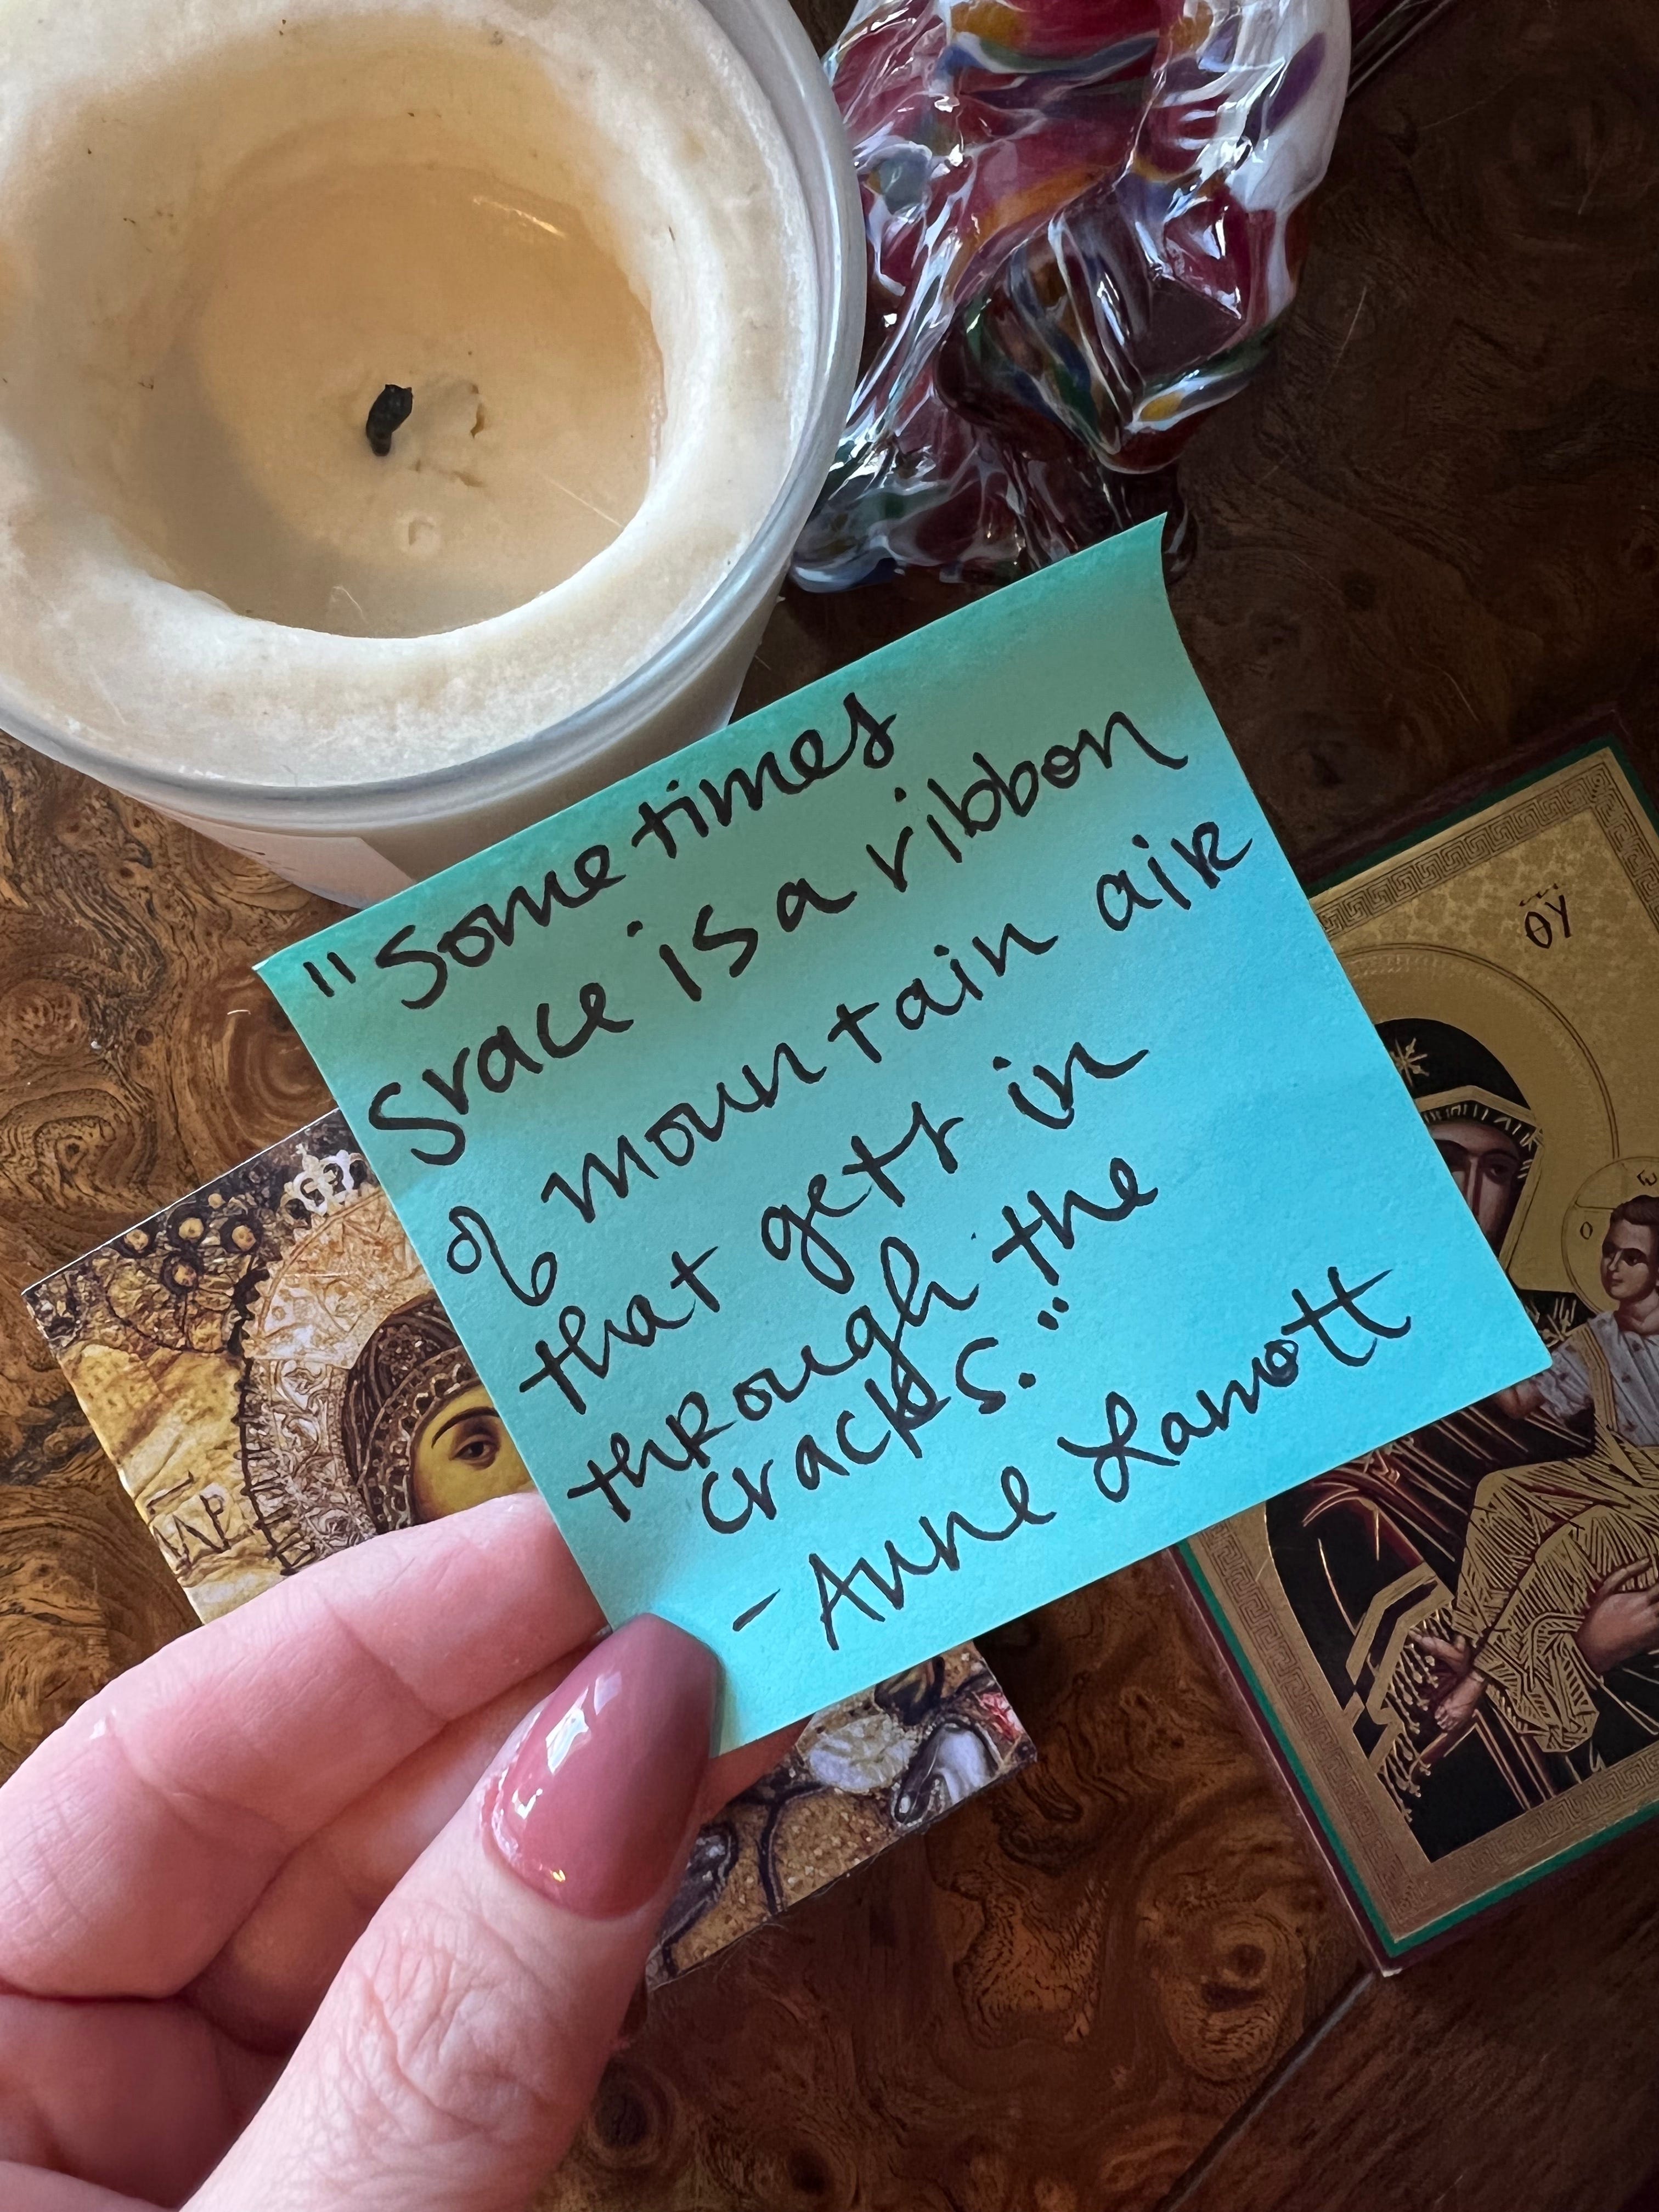 "Sometimes
grace is a ribbon
of mountain air
that gets in
through the
cracks."
- Anne Lamott
ΘΥ
ΜΡ